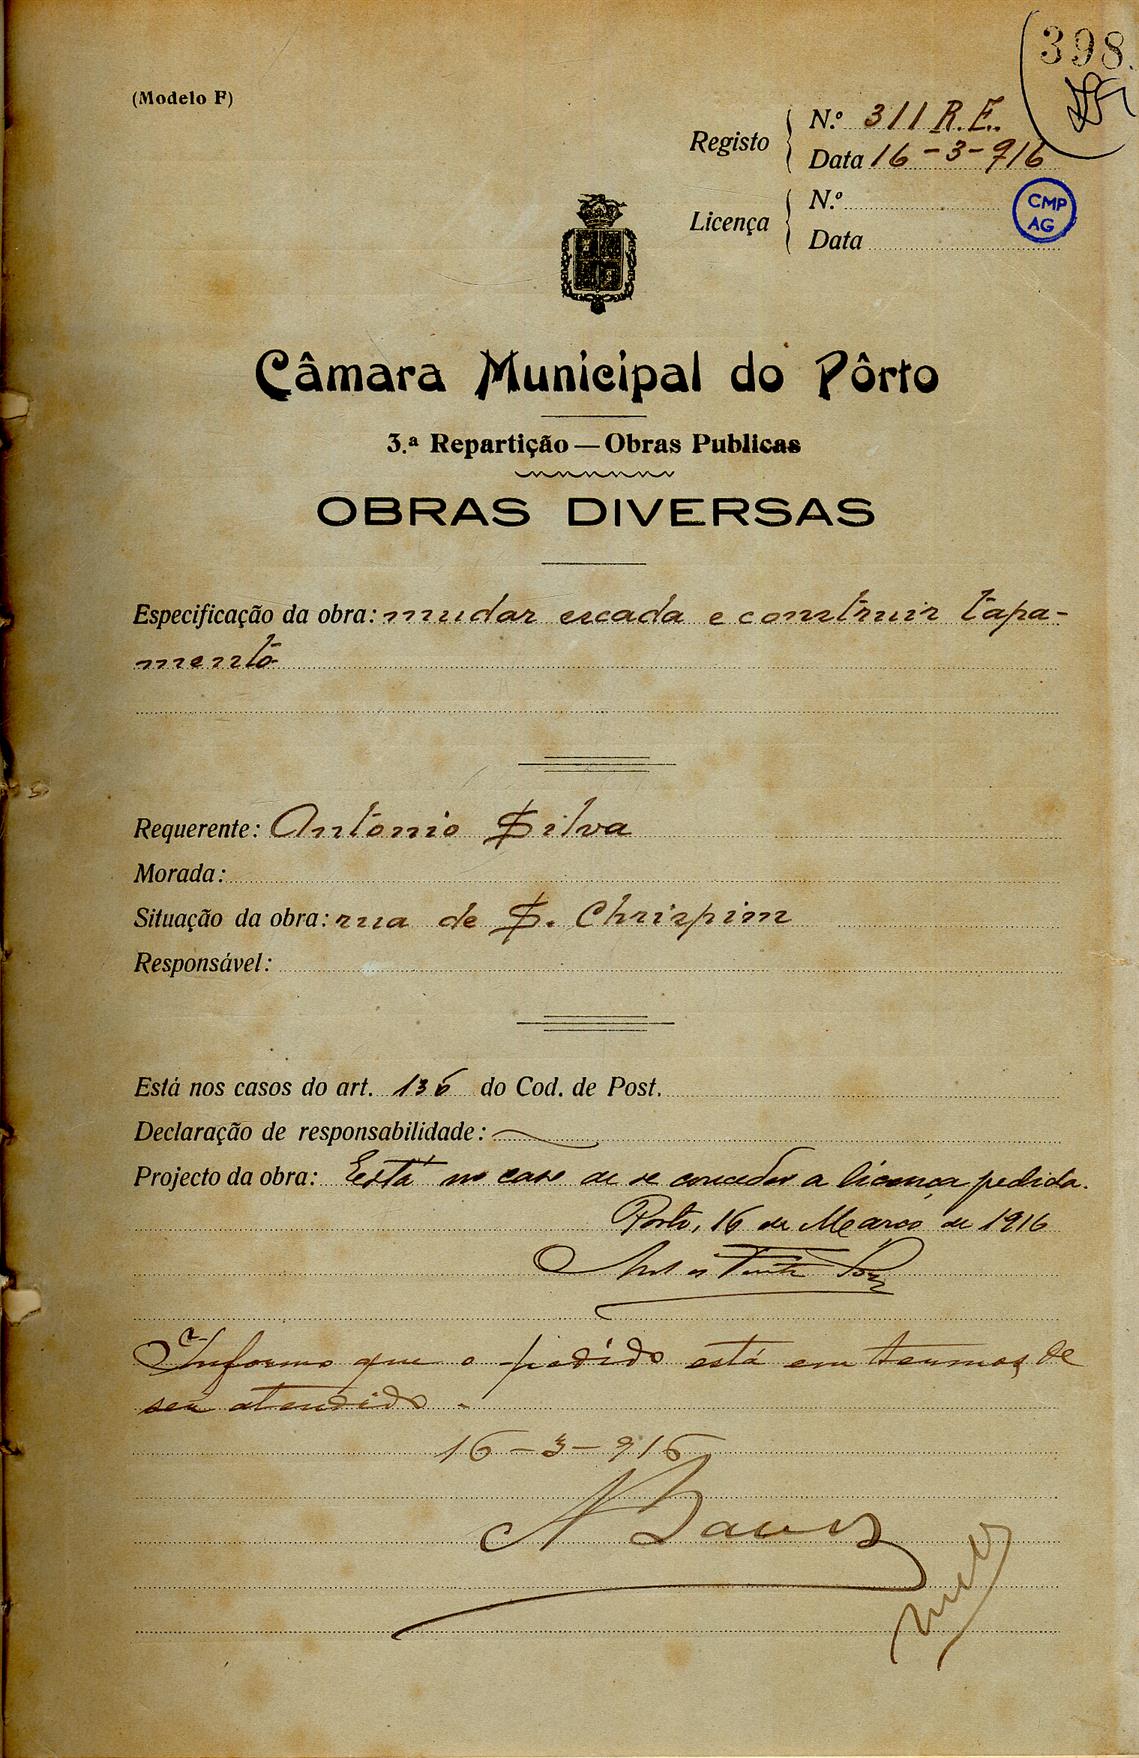 398
(Modelo F)
Registo
N.º 311 R.E.
Data 16-3-916
Licença
N.º
Data
CMP
AG
Câmara Municipal do Pôrto
3.ª Repartição — Obras Publicas
OBRAS DIVERSAS
Especificação da obra: mudar escada e construir tapa-
mento
Requerente: Antonio Silva
Morada:
Situação da obra: rua de S. Chrispim
Responsável:
Está nos casos do art. 136 do Cod. de Post.
Declaração de responsabilidade:
Projecto da obra: Está no caso de se conceder a licença pedida.
Porto, 16 de Março de 1916
Informo que o pedido está em termos de
ser atendido.
16-3-916